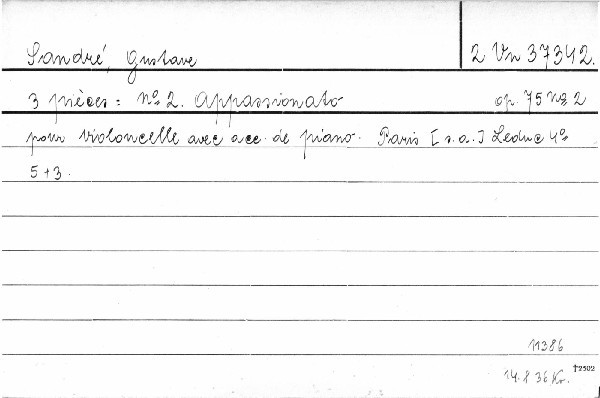 Sandré, Gustave 2 Vn 37342.
3 pièces: No 2. Appassionato op. 75 No 2
pour violoncelle avec acc. de piano. Paris [s.a.] Leduc 4o
5+3.
11386
14.8 36 Kr. †2502